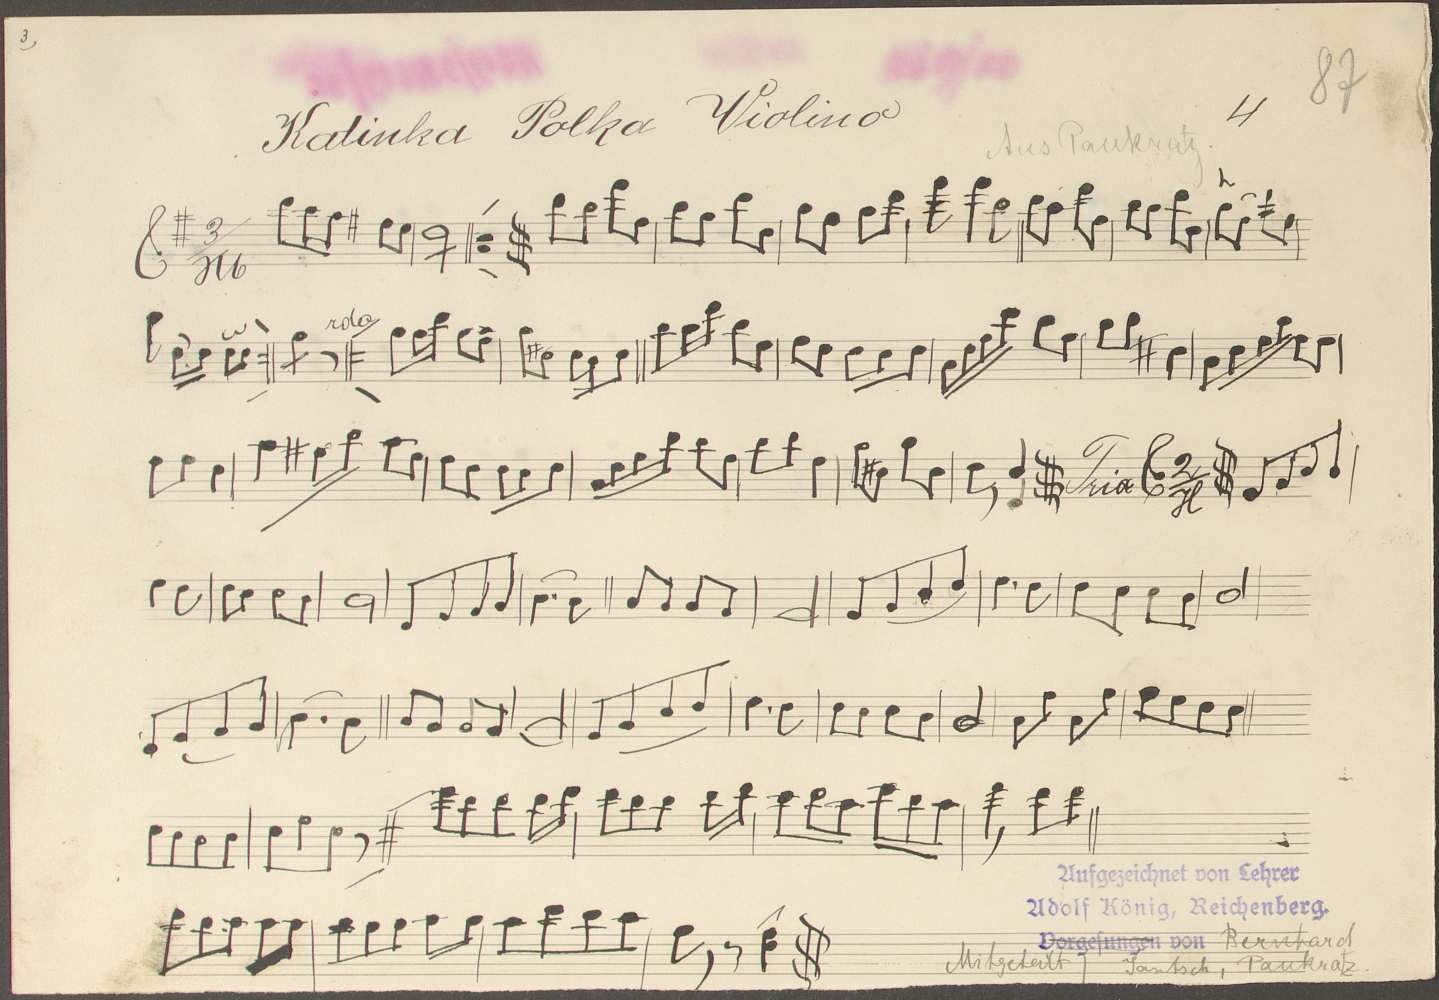 3
87
Kalinka Polka Violino 4
Aus Pankratz.
Trio
Aufgezeichnet von Lehrer
Adolf König, Reichenberg.
Vorgesungen von Bernhard
Mitgeteilt Jantsch, Pankratz.